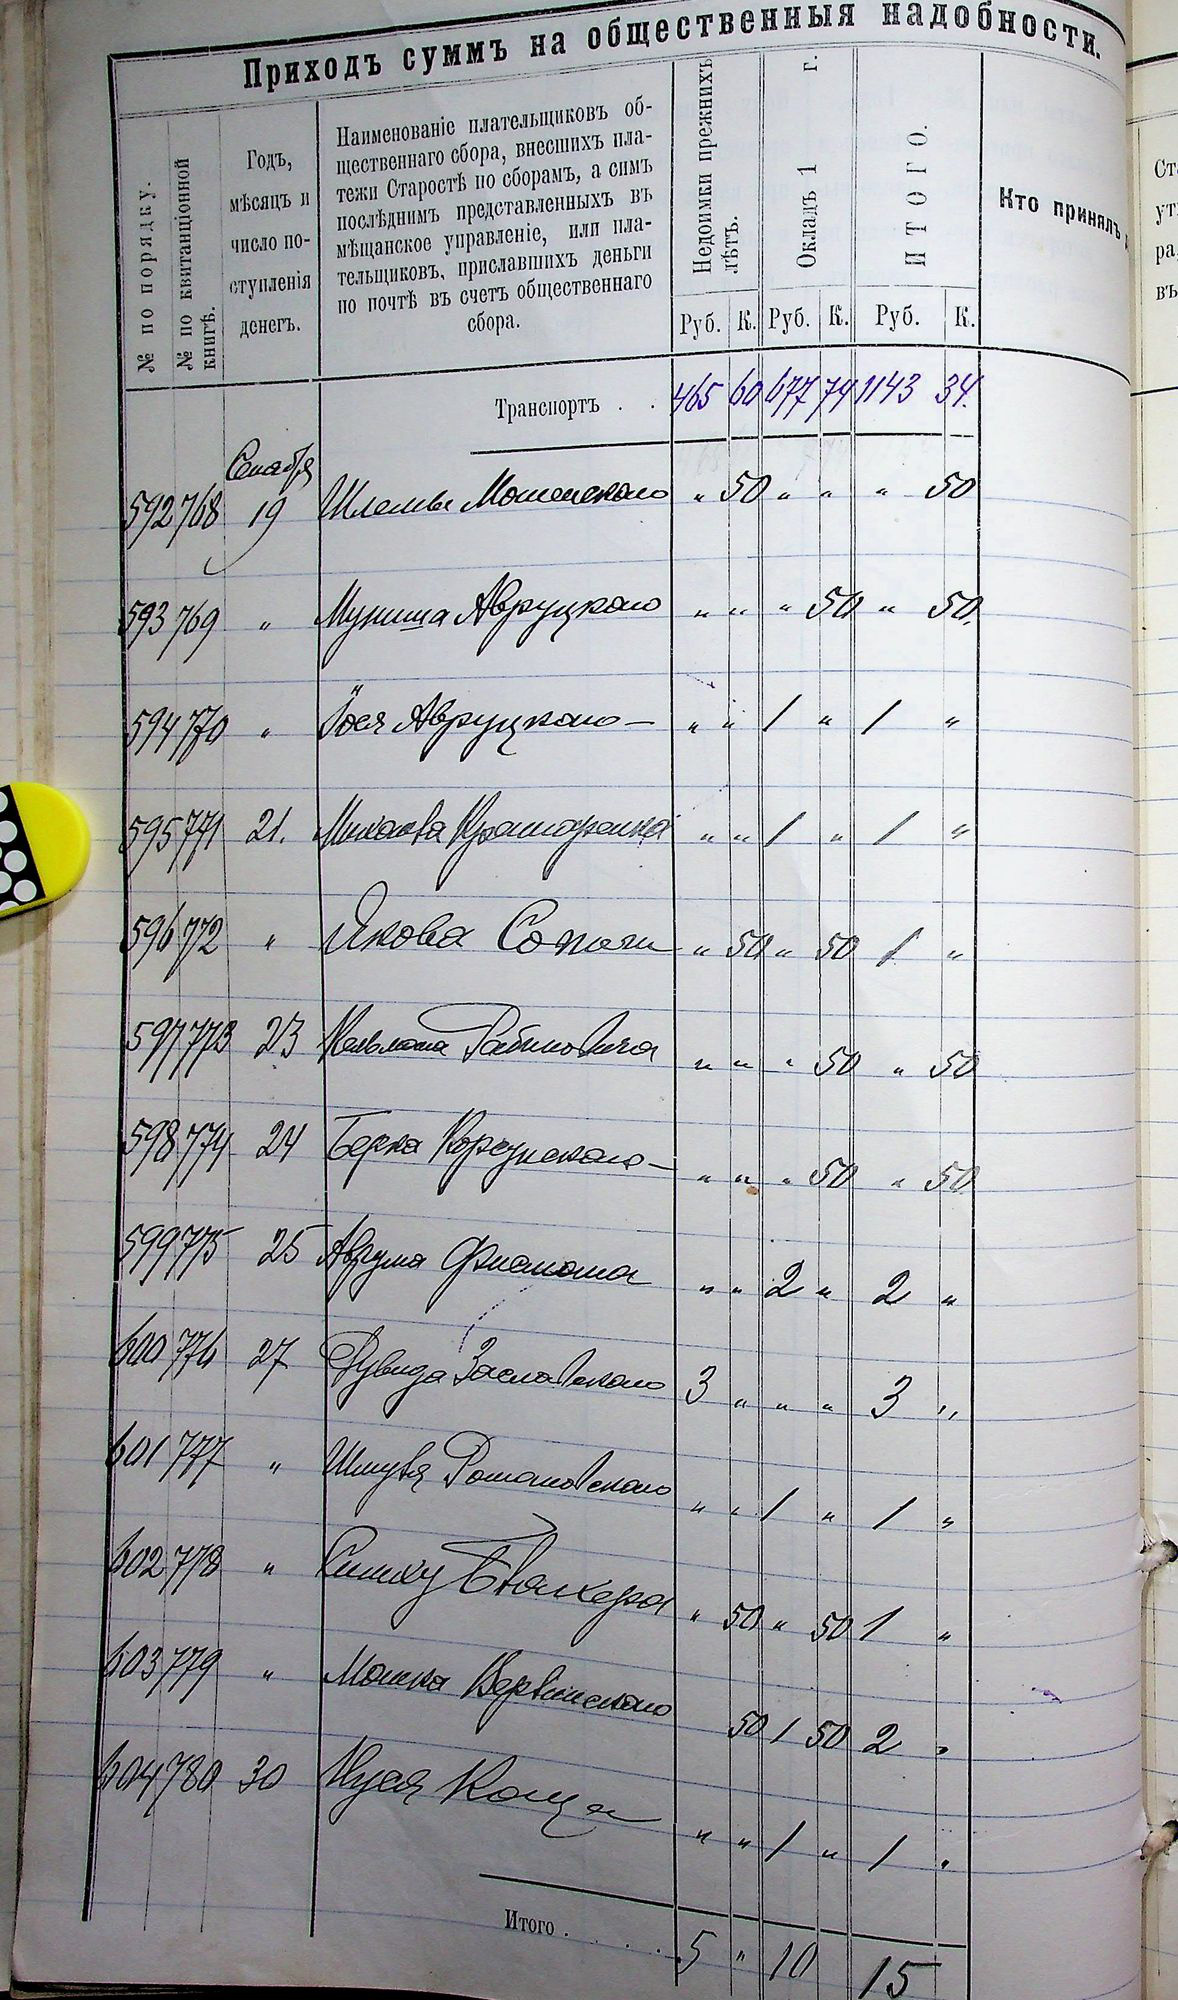 Приходъ суммъ на общественныя надобности.
№ по порядку.
№ по квитанціонной
книгѣ.
Годъ,
мѣсяцъ и
число по-
ступленія
денегъ.
Наименованіе плательщиковъ об-
щественнаго сбора, внесшихъ пла-
тежи Старостѣ по сборамъ, а симъ
послѣднимъ представленныхъ въ
мѣщанское управленіе, или пла-
тельщиковъ, приславшихъ деньги
по почтѣ въ счетъ общественнаго
сбора.
Недоимки прежнихъ
лѣтъ.
Окладъ 1 г.
ИТОГО.
Кто принялъ
Руб. К. Руб. К. Руб. К.
Транспортъ . . 465 60 677 74 1143 34.
592 768 19 Шлемы „ 50 „ „ „ 50
593 769 „ Муниша Авруцкаго „ „ „ 50 „ 50.
594 770 „ Іося Авруцкаго — „ „ 1 „ 1 „
595 771 21. „ „ 1 „ 1 „
596 772 „ Якова „ 50 „ 50 1 „
597 773 23 Кельмана Рабиновича „ „ „ 50 „ 50
598 774 24 Берка Корсунскаго — „ „ „ 50 „ 50
599 775 25 Аврума Фишмана „ „ 2 „ 2 „
600 776 27 Дувида Заславскаго 3 „ „ „ 3 „
601 777 „ Шмуля Романовскаго „ „ 1 „ 1 „
602 778 „ „ 50 „ 50 1 „
603 779 „ Мошка 50 1 50 2 „
604 780 30 Каца „ „ 1 „ 1 „
Итого . . . . . 5 „ 10 15